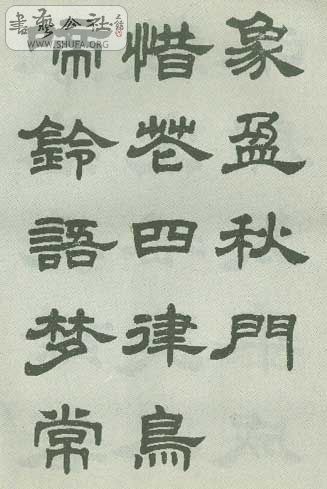 書藝公社
WWW.SHUFA.ORG
象盈秋門
惜花四律鳥
啼鈴語梦常